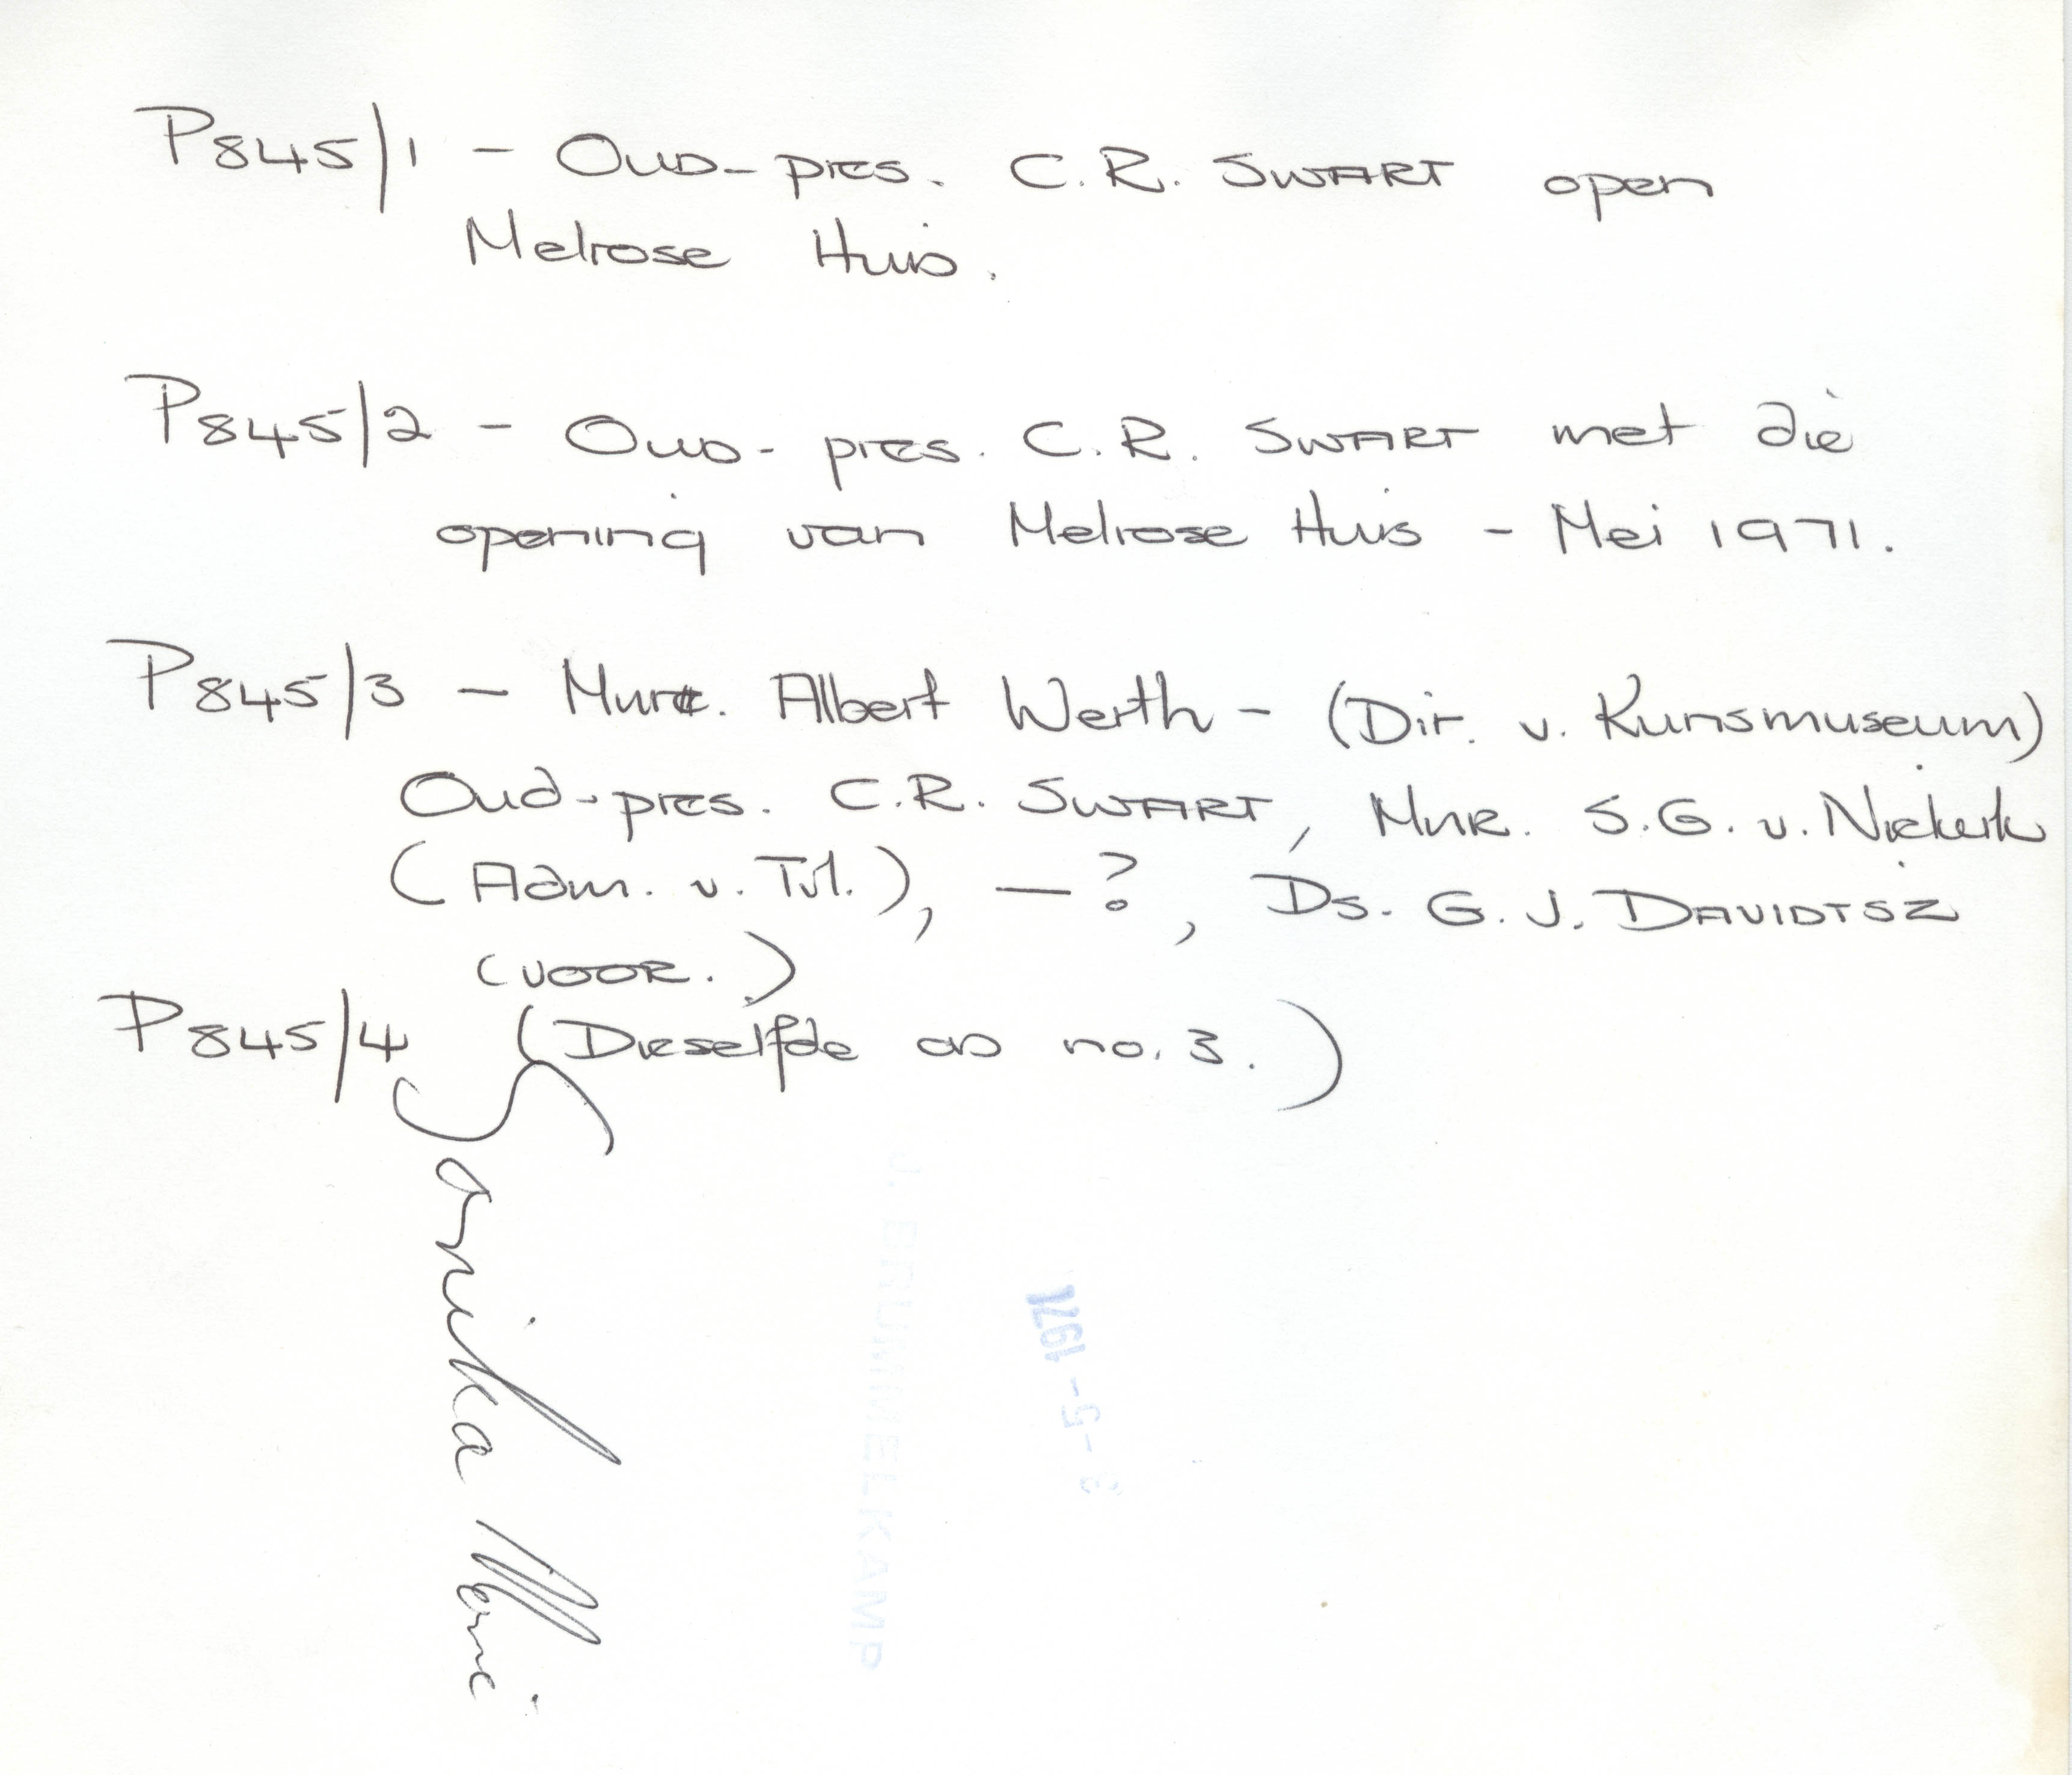 P845/1 - Oud-pres. C.R. SWART open
Melrose Huis.
P845/2 - Oud-pres. C.R. SWART met die
opening van Melrose Huis - Mei 1971.
P845/3 - Mnr. Albert Werth - (Dir. v. Kunsmuseum)
Oud-pres. C.R. SWART, Mnr. S.G. v. Niekerk
(Adm. v. Tvl.), — ?, Ds. G. J. DAVIDTSZ
(VOOR.)
P845/4 (Dieselfde as no. 3.)
1971
RUMMELKAMP